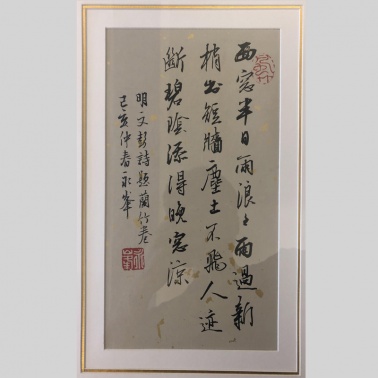 西窓半日雨浪〻雨過新
梢出短牆塵土不飛人迹
斷碧陰添得晚窓涼
明文彭詩題蘭竹卷
己亥仲春永峯